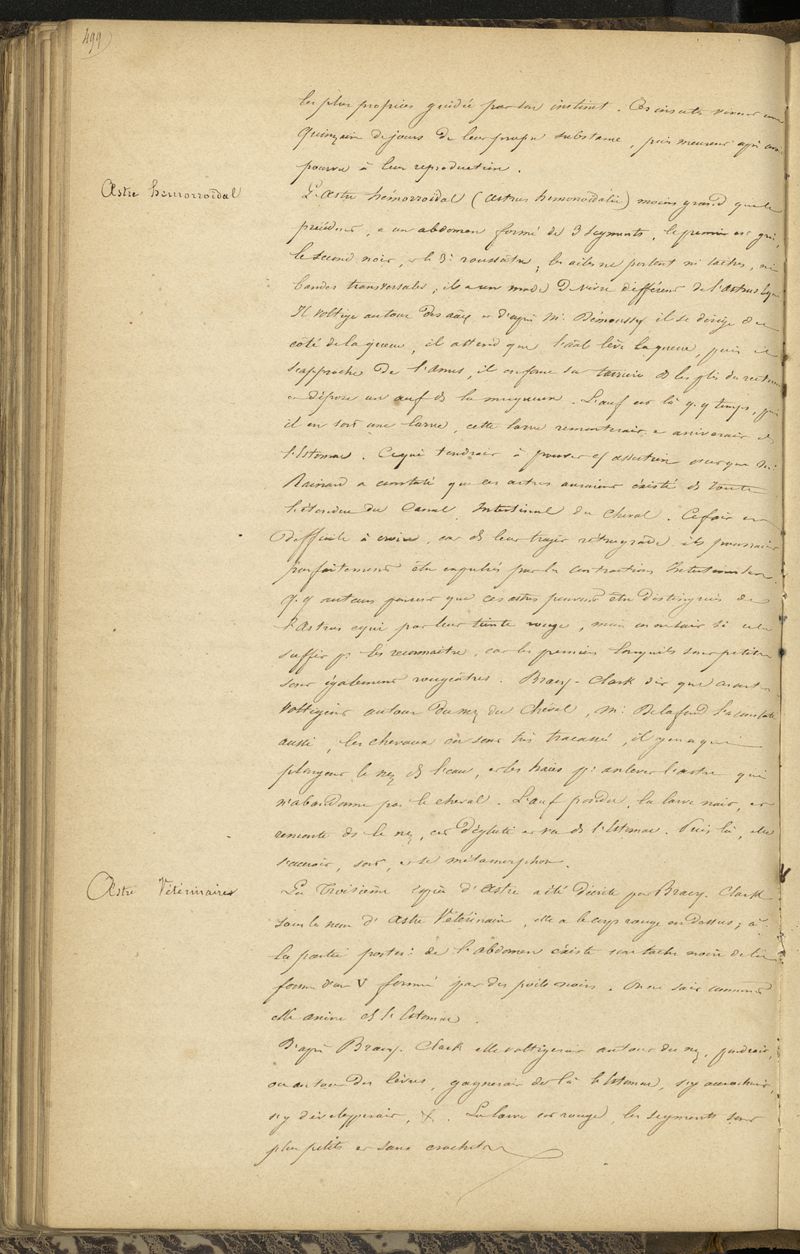 499
les plus propices guidée par son instinct. Ces insectes vivent une
quinzaine de jours de leur propre substance, puis meurent après avoir
pourvu à leur reproduction.
Œstre hémorroïdal
L'Œstre hémorroïdal (œstrus hemorroïdalis) moins grand que le
précédent, a un abdomen formé de 3 segments, le premier est gris,
le second noir, et le 3e roussâtre, les ailes ne portent ni taches, ni
bandes transversales, il a un mode de vivre différent de l'œstrus equi
Il voltige autour des et d'après Mr. Démoussy il se dirige du
côté de la queue, il attend que lève la queue, puis il
s'approche de l'anus, il enfonce sa tarière ds les plis du rectum
et dépose un œuf ds la muqueuse. L'œuf est là q.q temps, puis
il en sort une larve, cette larve remonterait et arriverait ds
l'estomac. Ce qui tendrait à prouver cette assertion c'est que Mr.
Rainard a constaté que ces œstres auraient existé ds toute
l'étendue du Canal Intestinal du cheval. Ce fait est
difficile à croire, car ds leur trajet rétrograde ils pourraient
parfaitement être expulsés par les contractions
q.q auteurs pensent que ces œstres peuvent être distingués de
l'œstrus equi par leur teinte rouge, mais on ne sait si cela
suffit pr les reconnaître, car les premiers lorsqu'ils sont petits
sont également rougeâtres. Bracy-Clark dit que
voltigent autour du nez du cheval, Mr. Delafond l'a constaté
aussi, les chevaux en sont très tracassés, il y en a qui
plongent le nez ds l'eau, et les haies pr enlever l'œstre qui
n'abandonne pas le cheval. L'œuf pondu, la larve nait, et
remonte ds le nez, est dégluti et va ds l'estomac. Puis là, elle
s'accroit, sort, et se métamorphose.
Œstre Vétérinaire
La Troisième espèce d'Œstre a été décrite par Bracy-Clark
sous le nom d'Œstre Vétérinaire, elle a le corps rouge en dessus, à
la partie poster: de l'abdomen existe une tache noire de la
forme d'un V formée par des poils noirs. On ne sait comment
elle arrive ds l'estomac.
D'après Bracy-Clark elle voltigerait autour du nez, pondrait,
ou autour des lèvres, gagnerait de là l'estomac, s'y accrocherait,
s'y développerait, &. La larve est rouge, les segments sont
plus petits et sans crochets